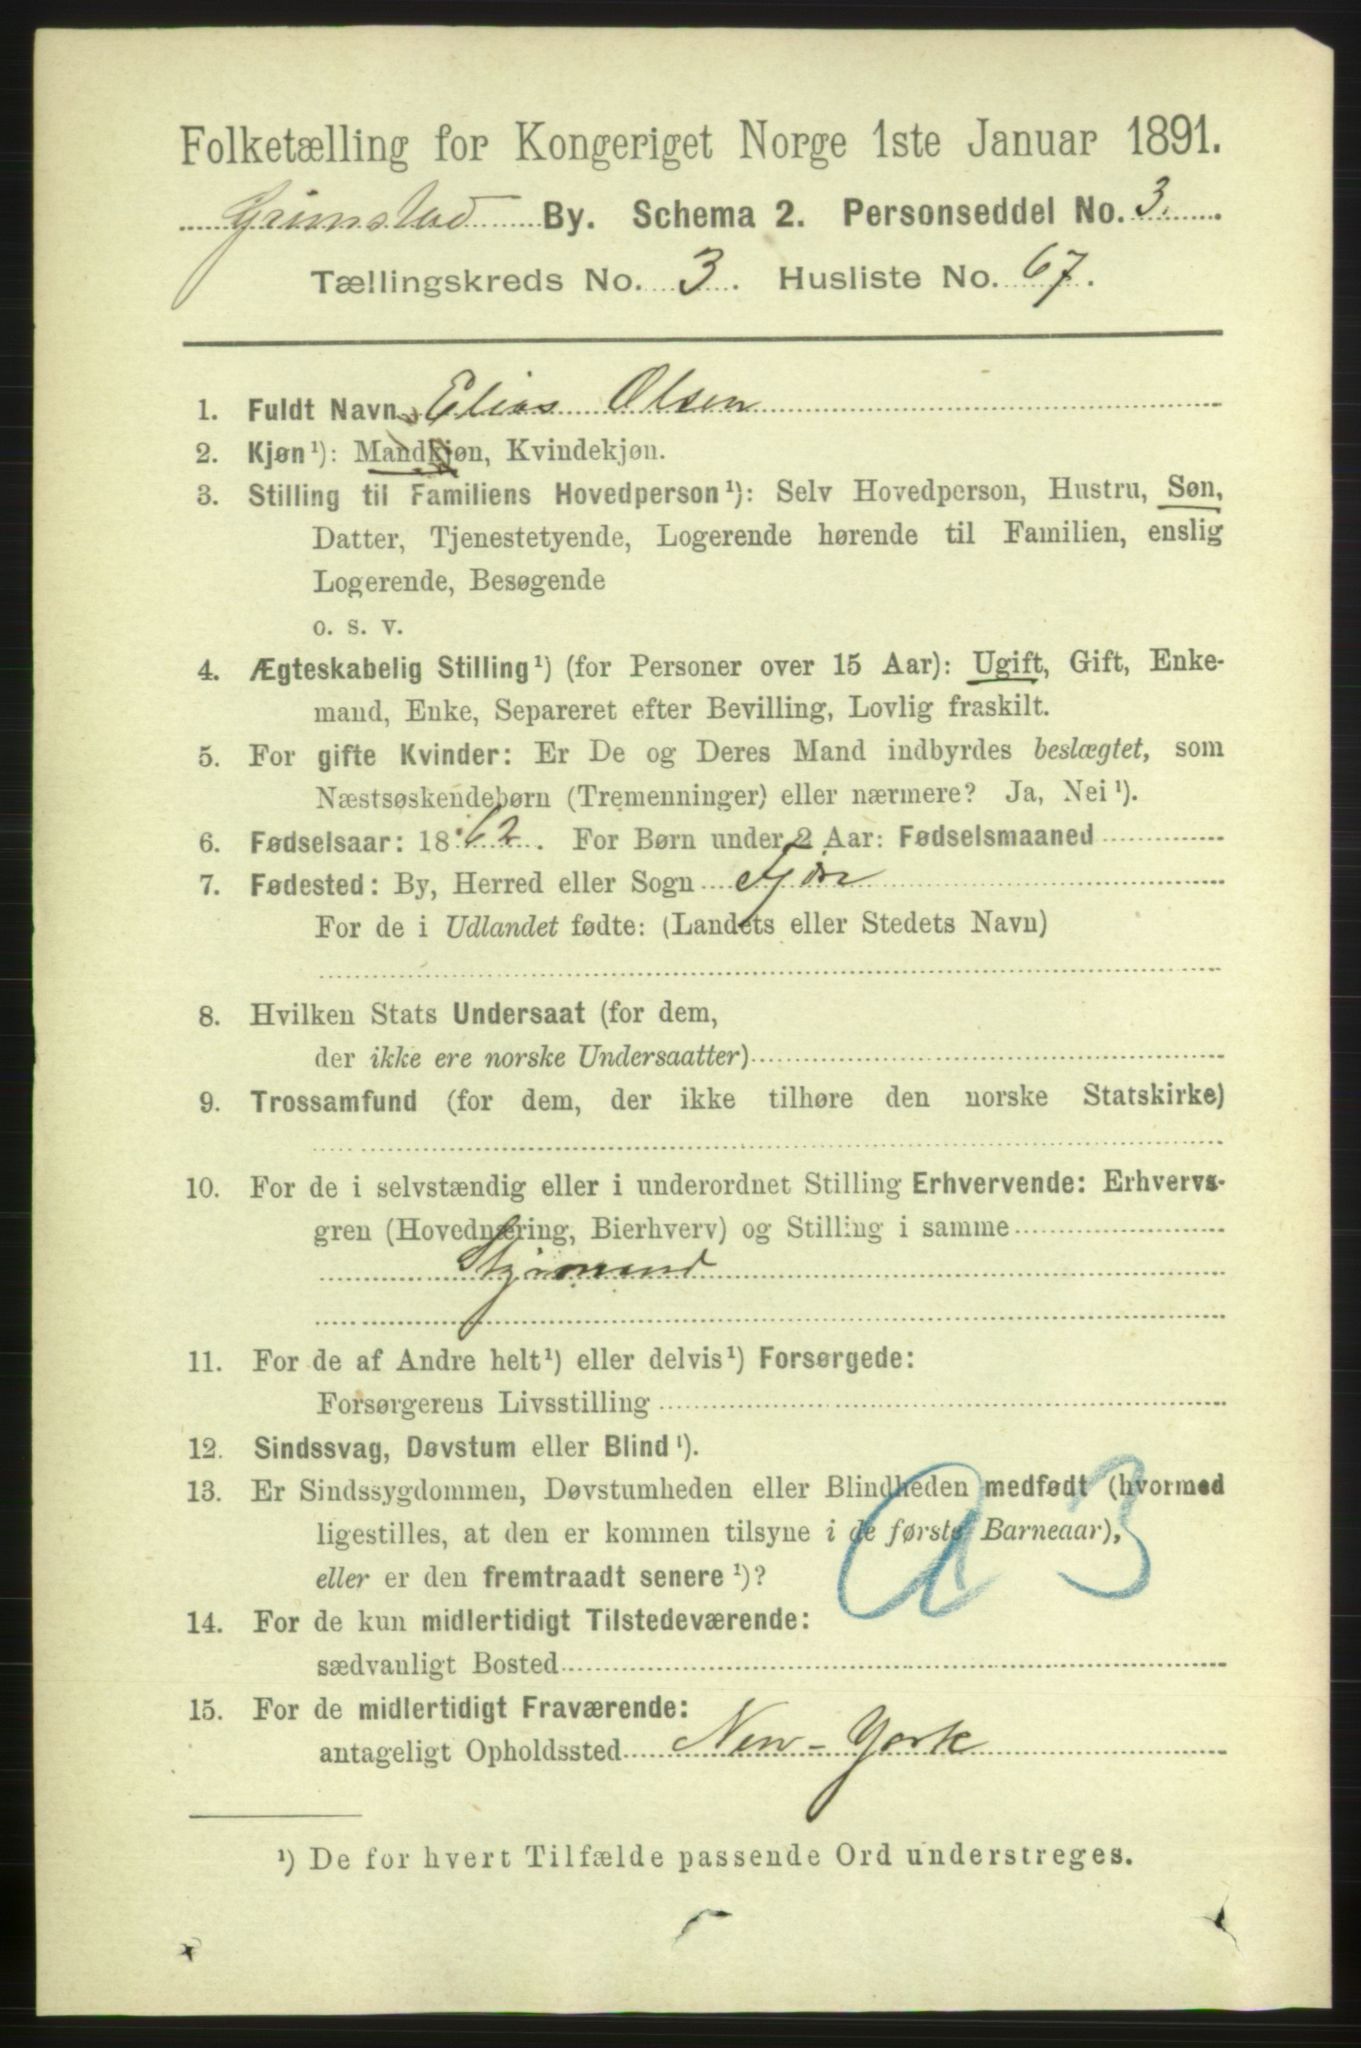 Folketælling for Kongeriget Norge 1ste Januar 1891.
Grimstad By. Schema 2. Personseddel No. 3.
Tællingskreds No. 3. Husliste No. 67.
1. Fuldt Navn Elias Olsen
2. Kjøn¹): Mandkjøn, Kvindekjøn.
3. Stilling til Familiens Hovedperson¹): Selv Hovedperson, Hustru, Søn,
Datter, Tjenestetyende, Logerende hørende til Familien, enslig
Logerende, Besøgende
o. s. v.
4. Ægteskabelig Stilling¹) (for Personer over 15 Aar): Ugift, Gift, Enke-
mand, Enke, Separeret efter Bevilling, Lovlig fraskilt.
5. For gifte Kvinder: Er De og Deres Mand indbyrdes beslægtet, som
Næstsøskendebørn (Tremenninger) eller nærmere? Ja, Nei¹).
6. Fødselsaar: 1862. For Børn under 2 Aar: Fødselsmaaned
7. Fødested: By, Herred eller Sogn Fjære
For de i Udlandet fødte: (Landets eller Stedets Navn)
8. Hvilken Stats Undersaat (for dem,
der ikke ere norske Undersaatter)
9. Trossamfund (for dem, der ikke tilhøre den norske Statskirke)
10. For de i selvstændig eller i underordnet Stilling Erhvervende: Erhvervs-
gren (Hovednæring, Bierhverv) og Stilling i samme
Styrmand
11. For de af Andre helt¹) eller delvis¹) Forsørgede:
Forsørgerens Livsstilling
12. Sindssvag, Døvstum eller Blind¹).
13. Er Sindssygdommen, Døvstumheden eller Blindheden medfødt (hvormed
ligestilles, at den er kommen tilsyne i de første Barneaar),
eller er den fremtraadt senere¹)?
a 3
14. For de kun midlertidigt Tilstedeværende:
sædvanligt Bosted
15. For de midlertidigt Fraværende:
antageligt Opholdssted New-York
¹) De for hvert Tilfælde passende Ord understreges.